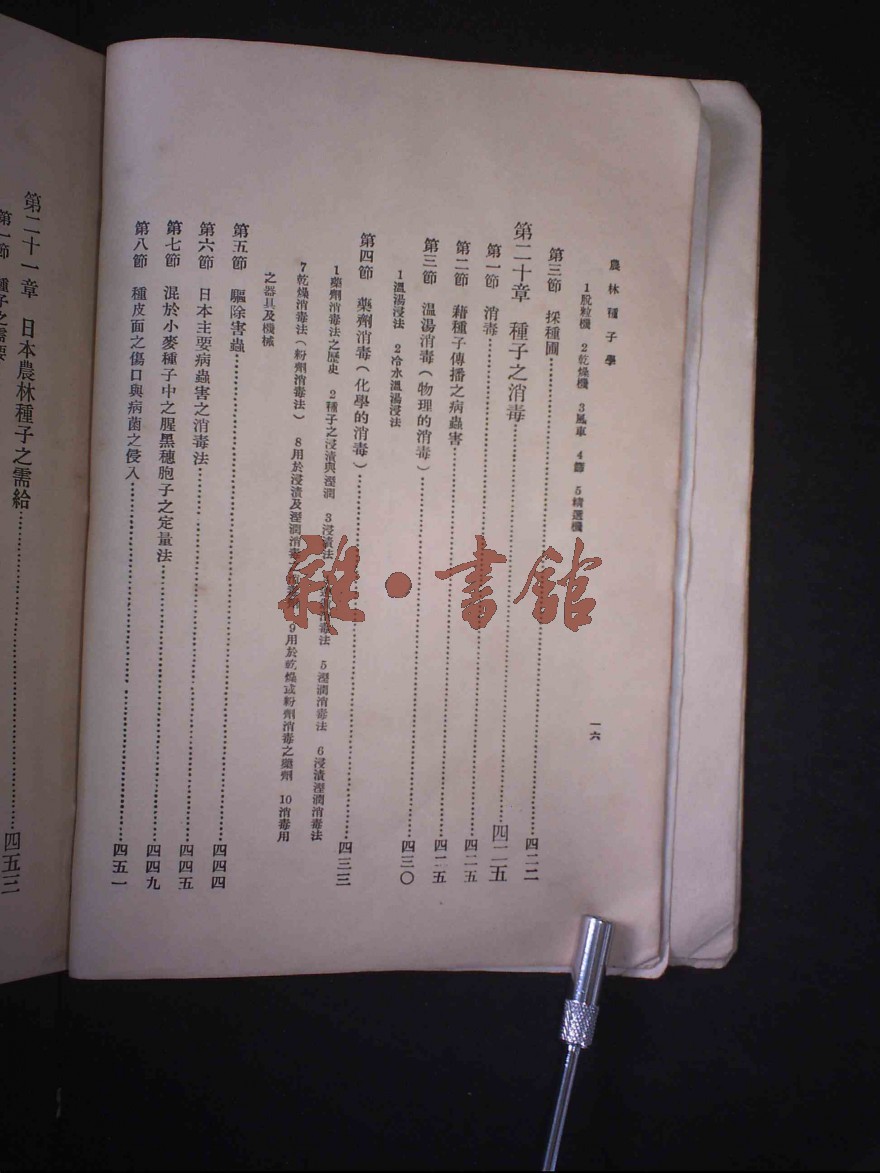 農林種子學
一六
1脫粒機 2乾燥機 3風車 4篩 5精選機
第三節 採種圃……四二二
第二十章 種子之消毒……四二五
第一節 消毒……四二五
第二節 藉種子傳播之病蟲害……四二五
第三節 溫湯消毒(物理的消毒)……四三〇
1溫湯浸法 2冷水溫湯浸法
第四節 藥劑消毒(化學的消毒)……四三三
1藥劑消毒法之歷史 2種子之浸漬與溼潤 3浸漬法 消毒法 5溼潤消毒法 6浸漬溼潤消毒法
7乾燥消毒法(粉劑消毒法) 8用於浸漬及溼潤消毒之藥劑 9用於乾燥或粉劑消毒之藥劑 10消毒用
之器具及機械
第五節 驅除害蟲……四四四
第六節 日本主要病蟲害之消毒法……四四五
第七節 混於小麥種子中之腥黑穗胞子之定量法……四四九
第八節 種皮面之傷口與病菌之侵入……四五一
第二十一章 日本農林種子之需給……四五三
第一節 種子之需要
雜·書館